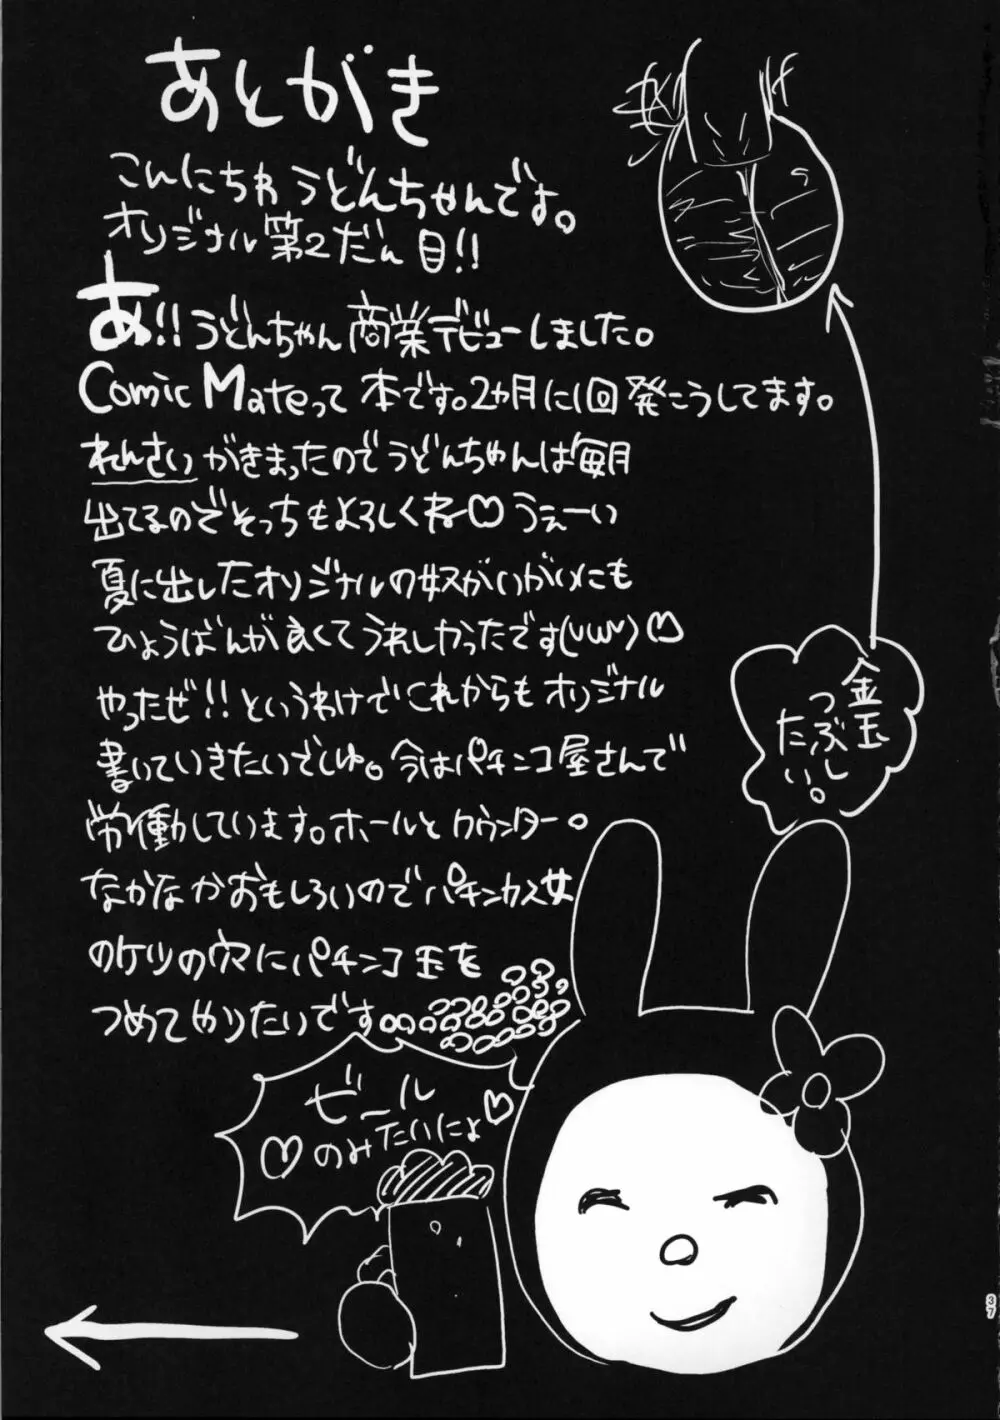 あとがき
こんにちわ うどんちゃんです。
オリジナル第2だん目!!
あ!!うどんちゃん商業デビューしました。
Comic Mateって本です。2カ月に1回発こうしてます。
れんさいがきまったのでうどんちゃんは毎月
出てるのでそっちもよろしくね♡うぇーい
夏に出したオリジナルの奴がいがいにも
ひょうばんが良くてうれしかったです(UωU)♡
やったぜ!!というわけでこれからもオリジナル
書いていきたいでしゅ。今はパチンコ屋さんで
労働しています。ホールとカウンター。
なかなかおもしろいのでパチンカス女
のケツの穴にパチンコ玉を
つめてやりたいです
金玉
つぶし
たい。
ビール
♡のみたいにょ♡
37